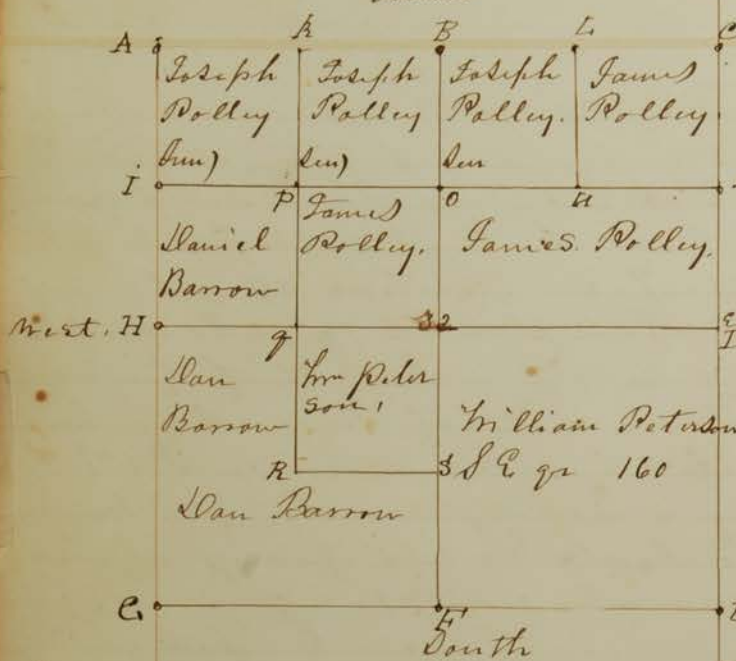 A
K
B
L
C
Joseph
Polley
Jun)
Joseph
Polley
Sen)
Joseph
Polley.
Sen
James
Polley
I
P
O
u
Daniel
Barrow
James
Polley.
James Polley.
West. H
q
32
E
Dan
Barrow
Wm Peter
son,
William Peterson
S E qr 160
R
S
Dan Barrow
G
F
South